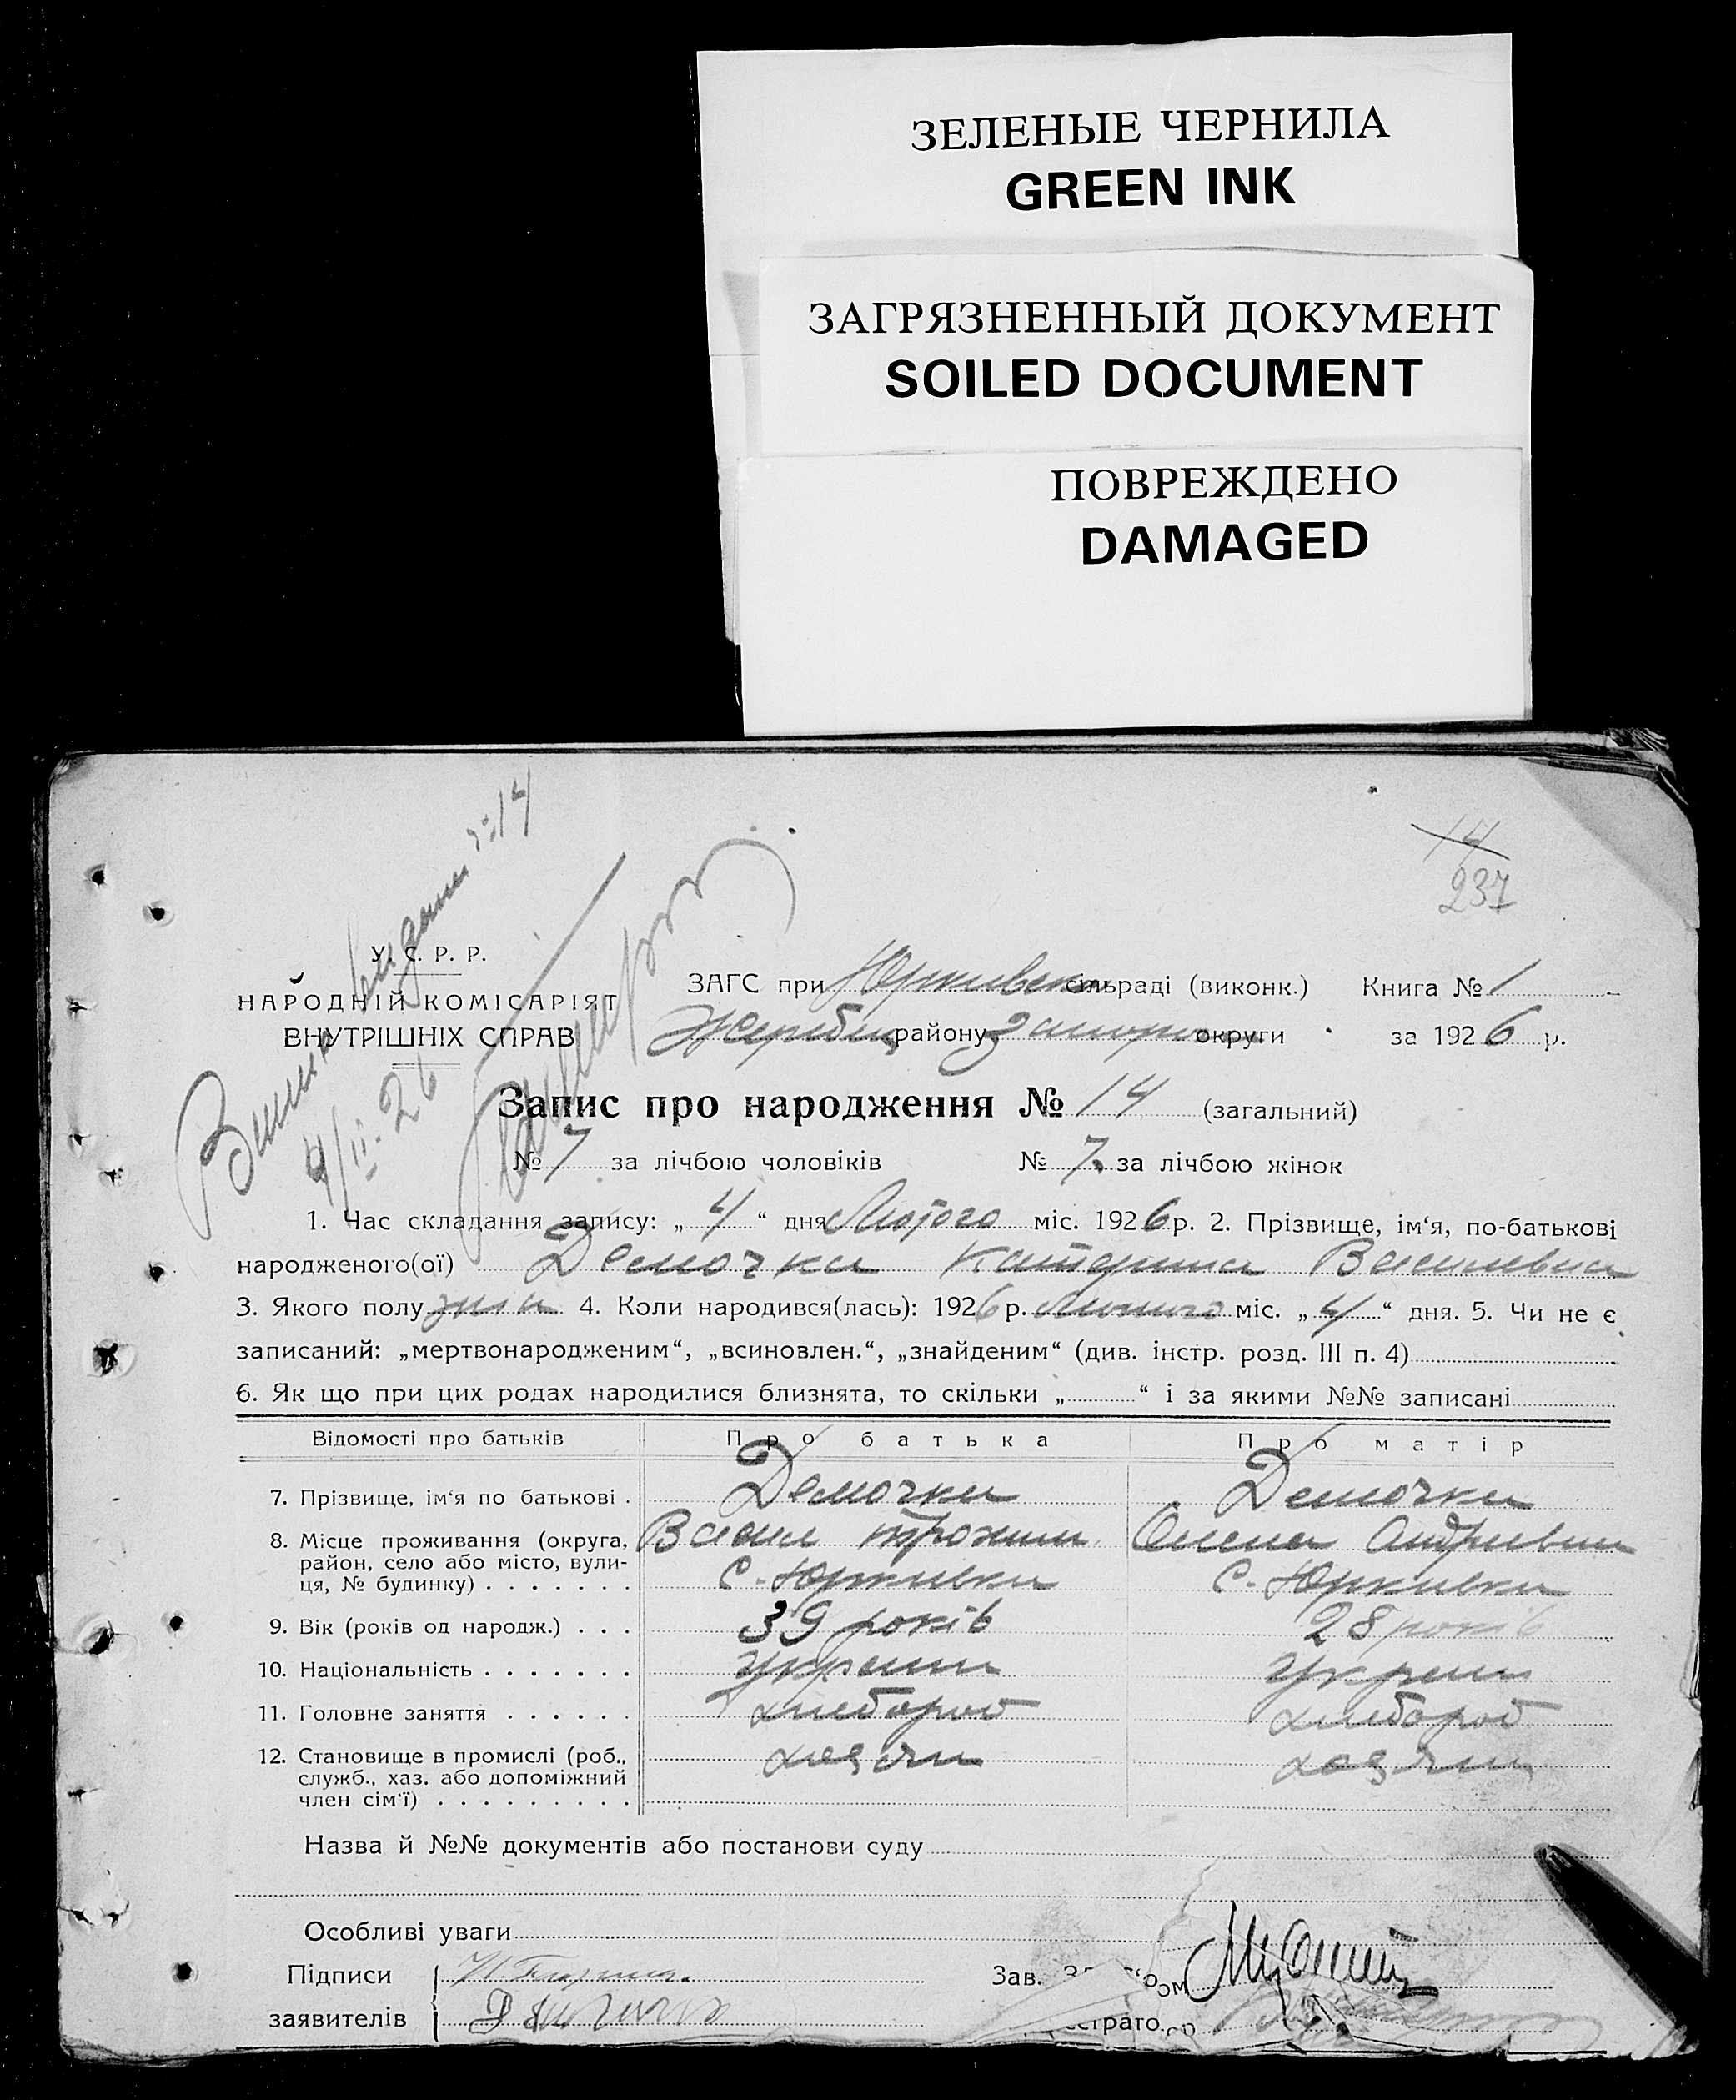 ЗЕЛЕНЫЕ ЧЕРНИЛА
GREEN INK
ЗАГРЯЗНЕННЫЙ ДОКУМЕНТ
SOILED DOCUMENT
ПОВРЕЖДЕНО
DAMAGED
14
237
видани №14
4/II-26
У. С. Р. Р.
НАРОДНІЙ КОМІСАРІЯТ
ВНУТРІШНІХ СПРАВ
ЗАГС при Юрківськ сільраді (виконк.) Книга № 1
Жеребец району Запоро округи за 1926 р.
Запис про народження № 14 (загальний)
№ 7 за лічбою чоловіків № 7 за лічбою жінок
1. Час складання запису: „ 4 “ дня Лютого міс. 1926 р. 2. Прізвище, ім‘я, по-батькові
народженого(ої) Демочка Катерина Василевна
3. Якого полу жін 4. Коли народився(лась): 1926 р. Лютого міс. „ 4 “ дня. 5. Чи не є
записаний: „мертвонародженим“, „всиновлен.“, „знайденим“ (див. інстр. розд. III п. 4)
6. Як що при цих родах народилися близнята, то скільки „ “ і за якими №№ записані
Відомості про батьків Про батька Про матір
7. Прізвище, ім‘я по батькові . Демочка Демочка
8. Місце проживання (округа, Васил Трохим Олена Андріевна
район, село або місто, вули-
ця, № будинку) . . . . . . . с. Юркивка с. Юркивка
9. Вік (років од народж.) . . . 39 років 28 років
10. Національність . . . . . . . украин украин
11. Головне заняття . . . . . . хлебороб хлебороб
12. Становище в промислі (роб., хазяин хазяин
служб., хаз. або допоміжний
член сім‘ї) . . . . . . . . .
Назва й №№ документів або постанови суду
Особливі уваги
Підписи
заявителів
Зав.